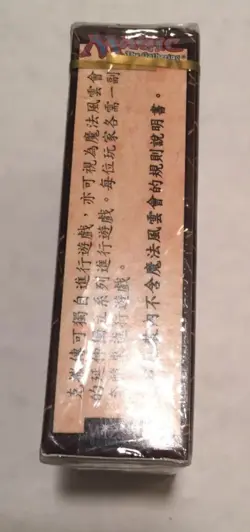 MAGIC
The Gathering
克撒傳可獨自進行遊戲，亦可視為魔法風雲會
的延伸獨立系列進行遊戲。每位玩家各需一副
進行遊戲。
內不含魔法風雲會的規則說明書。